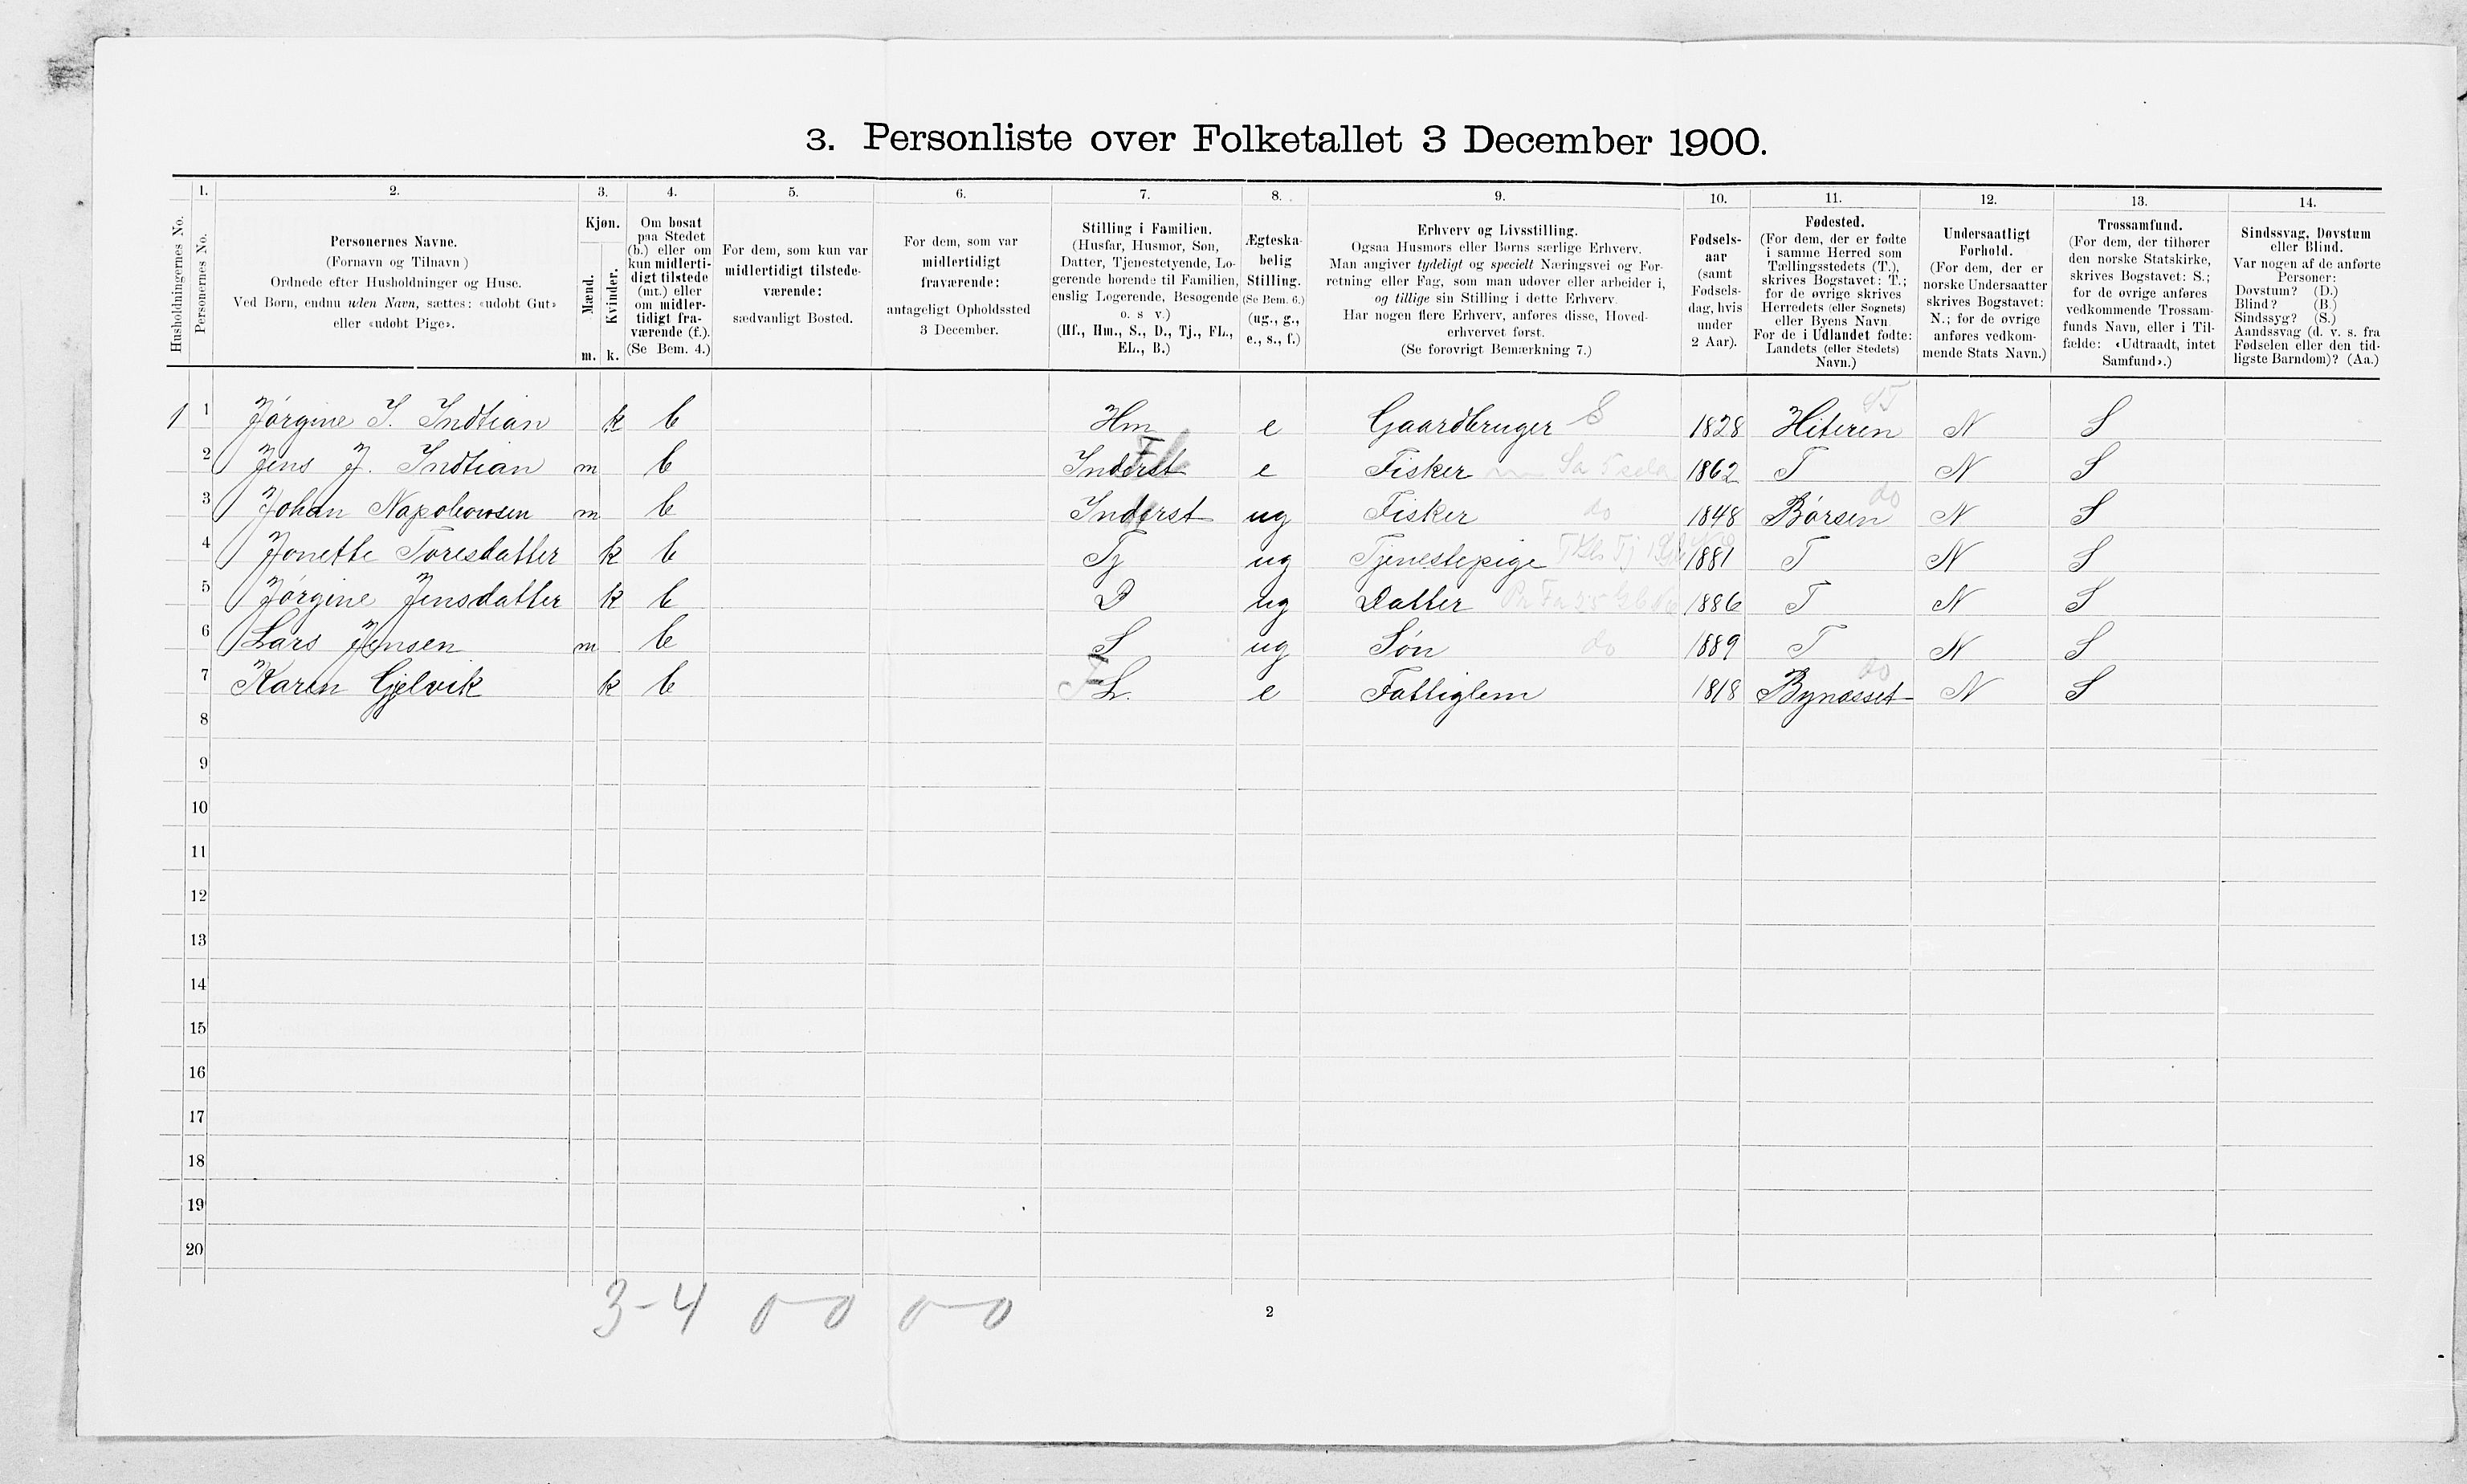 3. Personliste over Folketallet 3 December 1900.
1. 2. 3. 4. 5. 6. 7. 8. 9. 10. 11. 12. 13. 14.
Husholdningernes No.
Personernes No.
Personernes Navne.
(Fornavn og Tilnavn)
Ordnede efter Husholdninger og Huse.
Ved Børn, endnu uden Navn, sættes: «udøbt Gut»
eller «udøbt Pige».
Kjøn.
Mænd.
Kvinder.
m. k.
Om bosat
paa Stedet
(b.) eller om
kun midlerti-
digt tilstede
(mt.) eller
om midler-
tidigt fra-
værende (f.).
(Se Bem. 4.)
For dem, som kun var
midlertidigt tilstede-
værende:
sædvanligt Bosted.
For dem, som var
midlertidigt
fraværende:
antageligt Opholdssted
3 December.
Stilling i Familien.
(Husfar, Husmor, Søn,
Datter, Tjenestetyende, Lo-
gerende hørende til Familien,
enslig Logerende, Besøgende
o. s v.)
(Hf., Hm., S., D., Tj., FL.,
EL., B.)
Ægteska-
belig
Stilling.
(Se Bem. 6.)
(ug., g.,
e., s., f.)
Erhverv og Livsstilling.
Ogsaa Husmors eller Børns særlige Erhverv.
Man angiver tydeligt og specielt Næringsvei og For-
retning eller Fag, som man udøver eller arbeider i,
og tillige sin Stilling i dette Erhverv.
Har nogen flere Erhverv, anføres disse, Hoved-
erhvervet først.
(Se forøvrigt Bemærkning 7.)
Fødsels-
aar
(samt
Fødsels-
dag, hvis
under
2 Aar).
Fødested.
(For dem, der er fødte
i samme Herred som
Tællingsstedets (T.),
skrives Bogstavet: T.;
for de øvrige skrives
Herredets (eller Sognets)
eller Byens Navn.
For de i Udlandet fødte:
Landets (eller Stedets)
Navn.)
Undersaatligt
Forhold.
(For dem, der er
norske Undersaatter
skrives Bogstavet:
N.; for de øvrige
anføres vedkom-
mende Stats Navn.)
Trossamfund.
(For dem, der tilhører
den norske Statskirke,
skrives Bogstavet: S.;
for de øvrige anføres
vedkommende Trossam-
funds Navn, eller i Til-
fælde: «Udtraadt, intet
Samfund».)
Sindssvag, Døvstum
eller Blind.
Var nogen af de anførte
Personer:
Døvstum? (D.)
Blind? (B.)
Sindssyg? (S.)
Aandssvag (d. v. s. fra
Fødselen eller den tid-
ligste Barndom)? (Aa.)
1 1 Jørgine J. Indtian k b Hm e Gaardbruger S 1828 Hiteren ST N S
2 Jens J. Indtian m b Inderst FL e Fisker 1862 T N S
3 Johan Napoleonsen m b Inderst ug Fisker do 1848 Børsen do N S
4 Jonette Toresdatter k b Tj ug Tjenestepige 1881 T N S
5 Jørgine Jensdatter k b D ug Datter 1886 T N S
6 Lars Jensen m b S ug Søn do 1889 T N S
7 Karen Gjelvik k b FL. e Fattiglem 1818 Bynæsset do N S
8
9
10
11
12
13
14
15
16
17
18
19
20
3-4 0-0 0-0
2